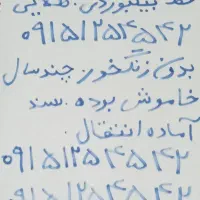 خط بیلبوردی. طلایی
۰۹۱۵۱۲۵۴۵۴۲
بدون زنگخور. چند سال
خاموش بوده. سند
آماده انتقال.
۰۹۱۵۱۲۵۴۵۴۲
۰۹۱۵۱۲۵۴۵۴۲